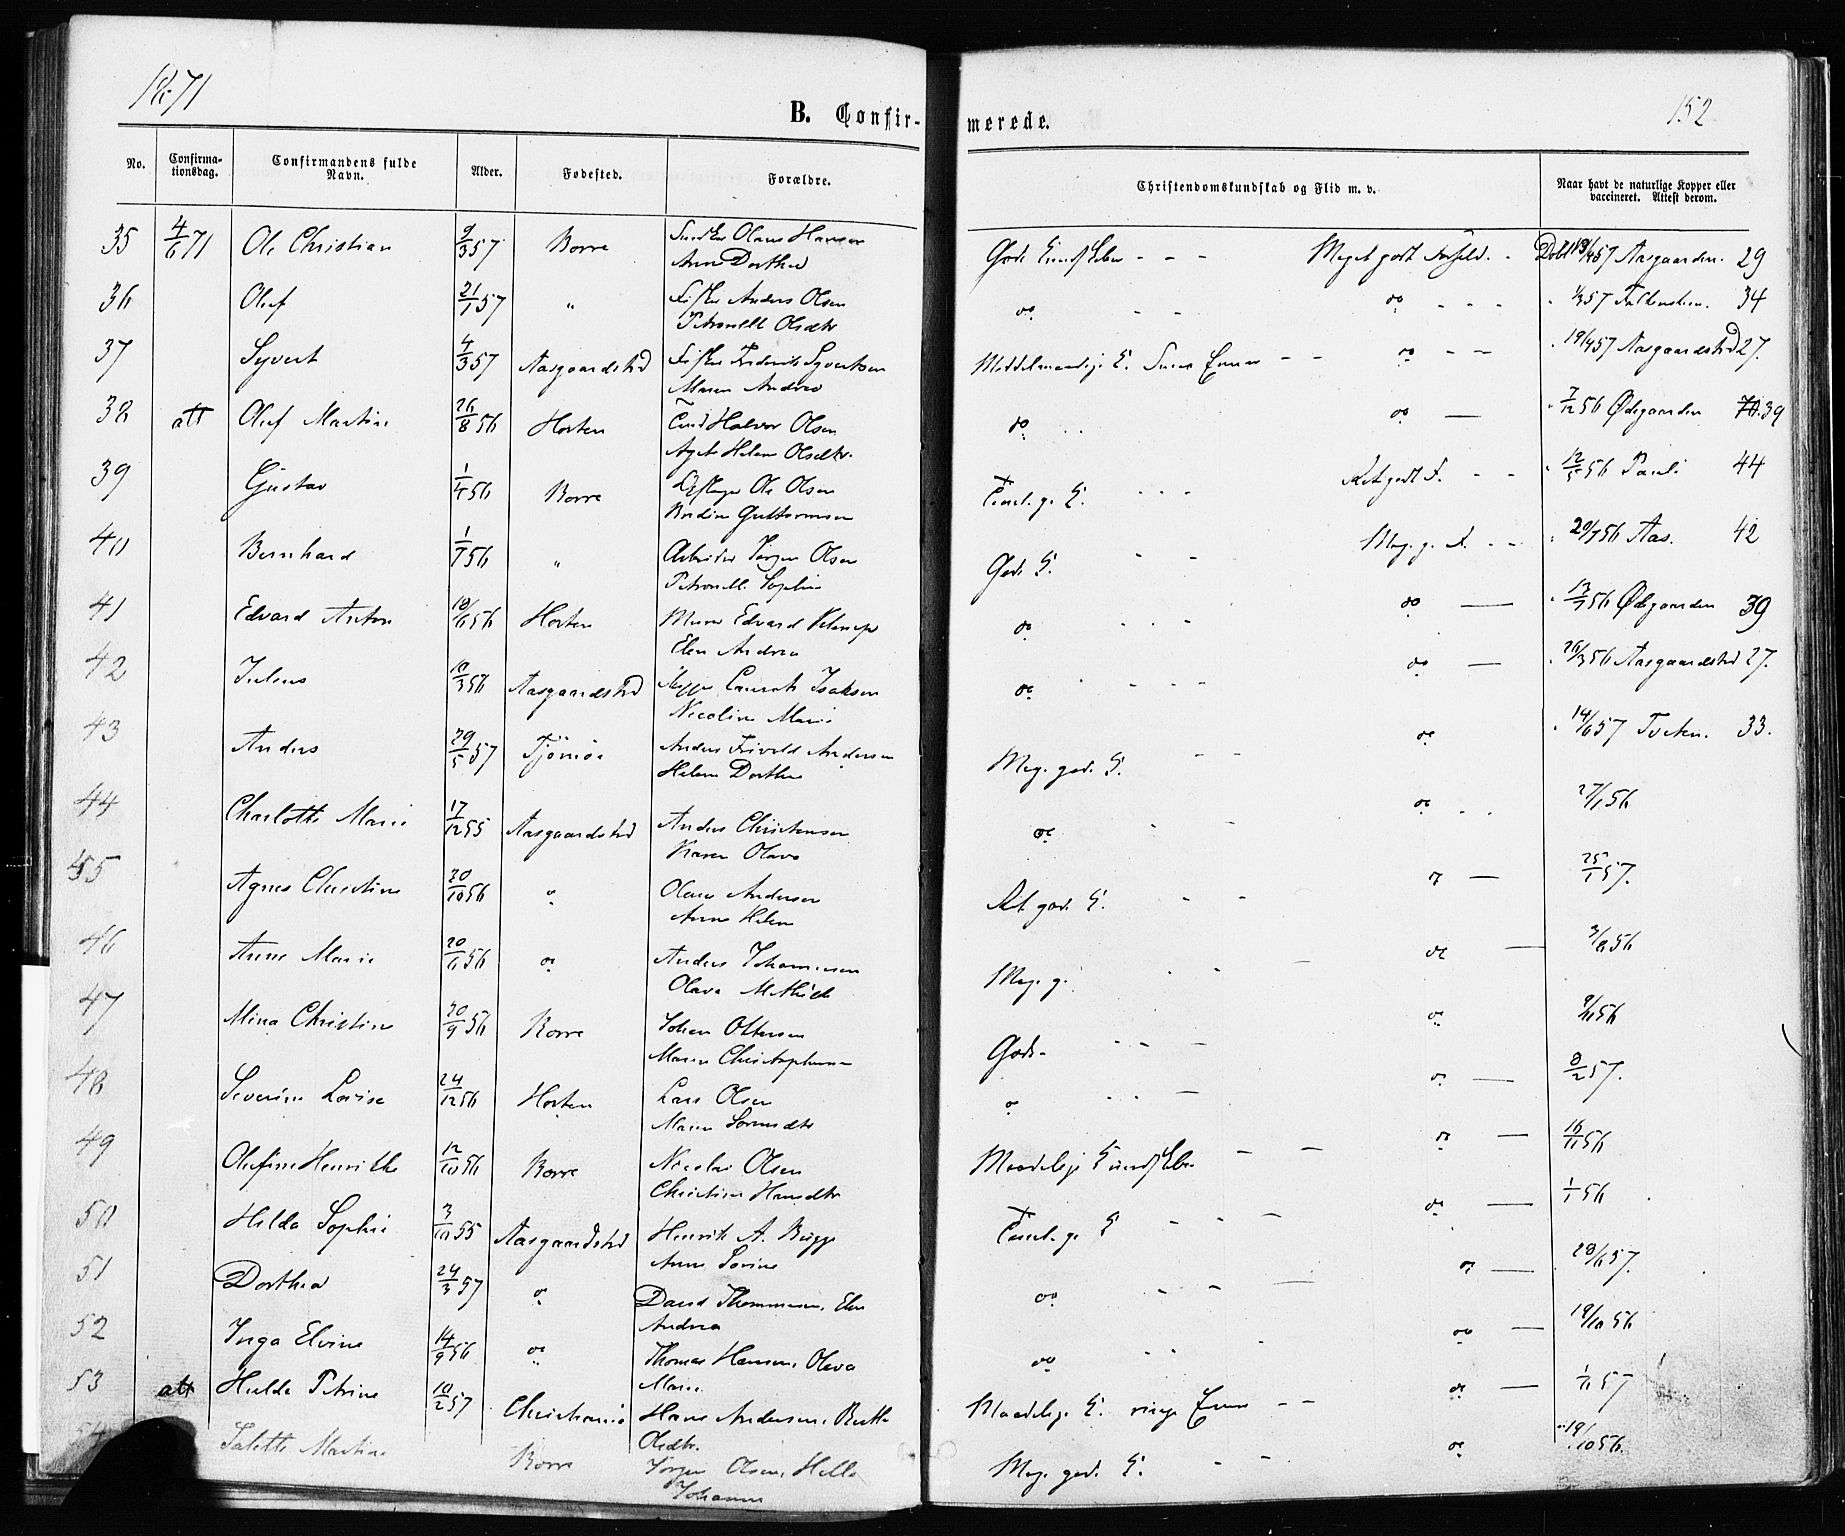 1871
152
B. Confir-
merede.
No.
Confirma-
tionsdag.
Confirmandens fulde
Navn.
Alder.
Fødested.
Forældre.
Christendomskundskab og Flid m. v.
Naar havt de naturlige Kopper eller
vaccineret. Attest derom.
35 4/6 71 Ole Christian 9/3 57 Borre Olaus Hansen
Anne Dorthea
Gode Kundskaber - - - Meget godt Forhold. - 57 Aasgaarden. 29
36 Oluf 21/1 57 " Fisker Anders Olsen
Petronelle Olsdtr
do - - do - - - 57 Falkensteen. 34
37 Syvert 4/3 57 Aasgaardstrd Fisker Frederik Syvertsen
Maren Andrea
Middelmaadige K. Evner - - do - - 19/4 57 Aasgaardstrd 27.
38 att Oluf Martin 26/8 56 Horten Halvor Olsen
Helene Olsdtr.
do - - do — 7/12 56 Ødegaarden 39
39 Gustav 1/4 56 Borre Ole Olsen
Guttormsen
Teml. g. K. - - - Ret godt F. - - 12/5 56 Pauli 44
40 Bernhard 1/7 56 " Arbeider Jørgen Olsen
Petronelle Sophie
Gode K. - - Meg. g. F. - - 56 Aas. 42
41 Edvard Anton 18/6 56 Horten Murer Edvard
Elen Andrea
do - - - do — 13/7 56 Ødegaarden 39
42 Julius 10/3 56 Aasgaardstrd Laurits Isaksen
Nicoline Marie
do - - - do — 26/3 56 Aasgaardstrd 27.
43 Anders 29/5 57 Tjømøe Anders Andersen
Helene Dorthea
Meg. gode K. - - do 14/6 57 Tveten. 33.
44 Charlotte Marie 17/12 55 Aasgaardstrd Anders Christensen
Karen Olava
do - - do - - 27/1 56
45 Agnes Christine 20/10 56 do Olaus Andersen
Anne Helene
Ret gode K. - - do — 25/1 57.
46 Anne Marie 20/6 56 do Anders Johannesen
Olava Mathilde
Meg. g. - - - do — 3/8 56
47 Mina Christine 20/9 56 Borre Johan Ottersen
Maren Christophersen
Gode - - - - do 56
48 Severine Lovise 24/12 56 Horten Lars Olsen
Maren
do - - - do — 8/2 57.
49 Olufine Henrikke 12/10 56 Borre Nicolai Olsen
Christine Hansdtr
Maadelige Kundskaber - - do — 16/11 56
50 Hilda Sophie 3/10 55 Aasgaardstrd Henrik A. Bugge
Anne Sorine
Teml. g. K - - - do — 1/1 56
51 Dorthea 24/3 57 do David Thommesen, Elen
Andrea
do - - - do — 28/6 57.
52 Inga Elvine 14/9 56 do Thomas Hansen, Olava
Marie.
do - - - do — 19/10 56
53 att Hulda Petrine 10/2 57 Christiania Hans Andersen, Berthe
Olsdtr.
Maadelige K. ringe Evner - - do — 57
54 Talette Martine Borre Jørgen Olsen, Helle
Johanne
Meg. gode K. - - do 19/10 56.